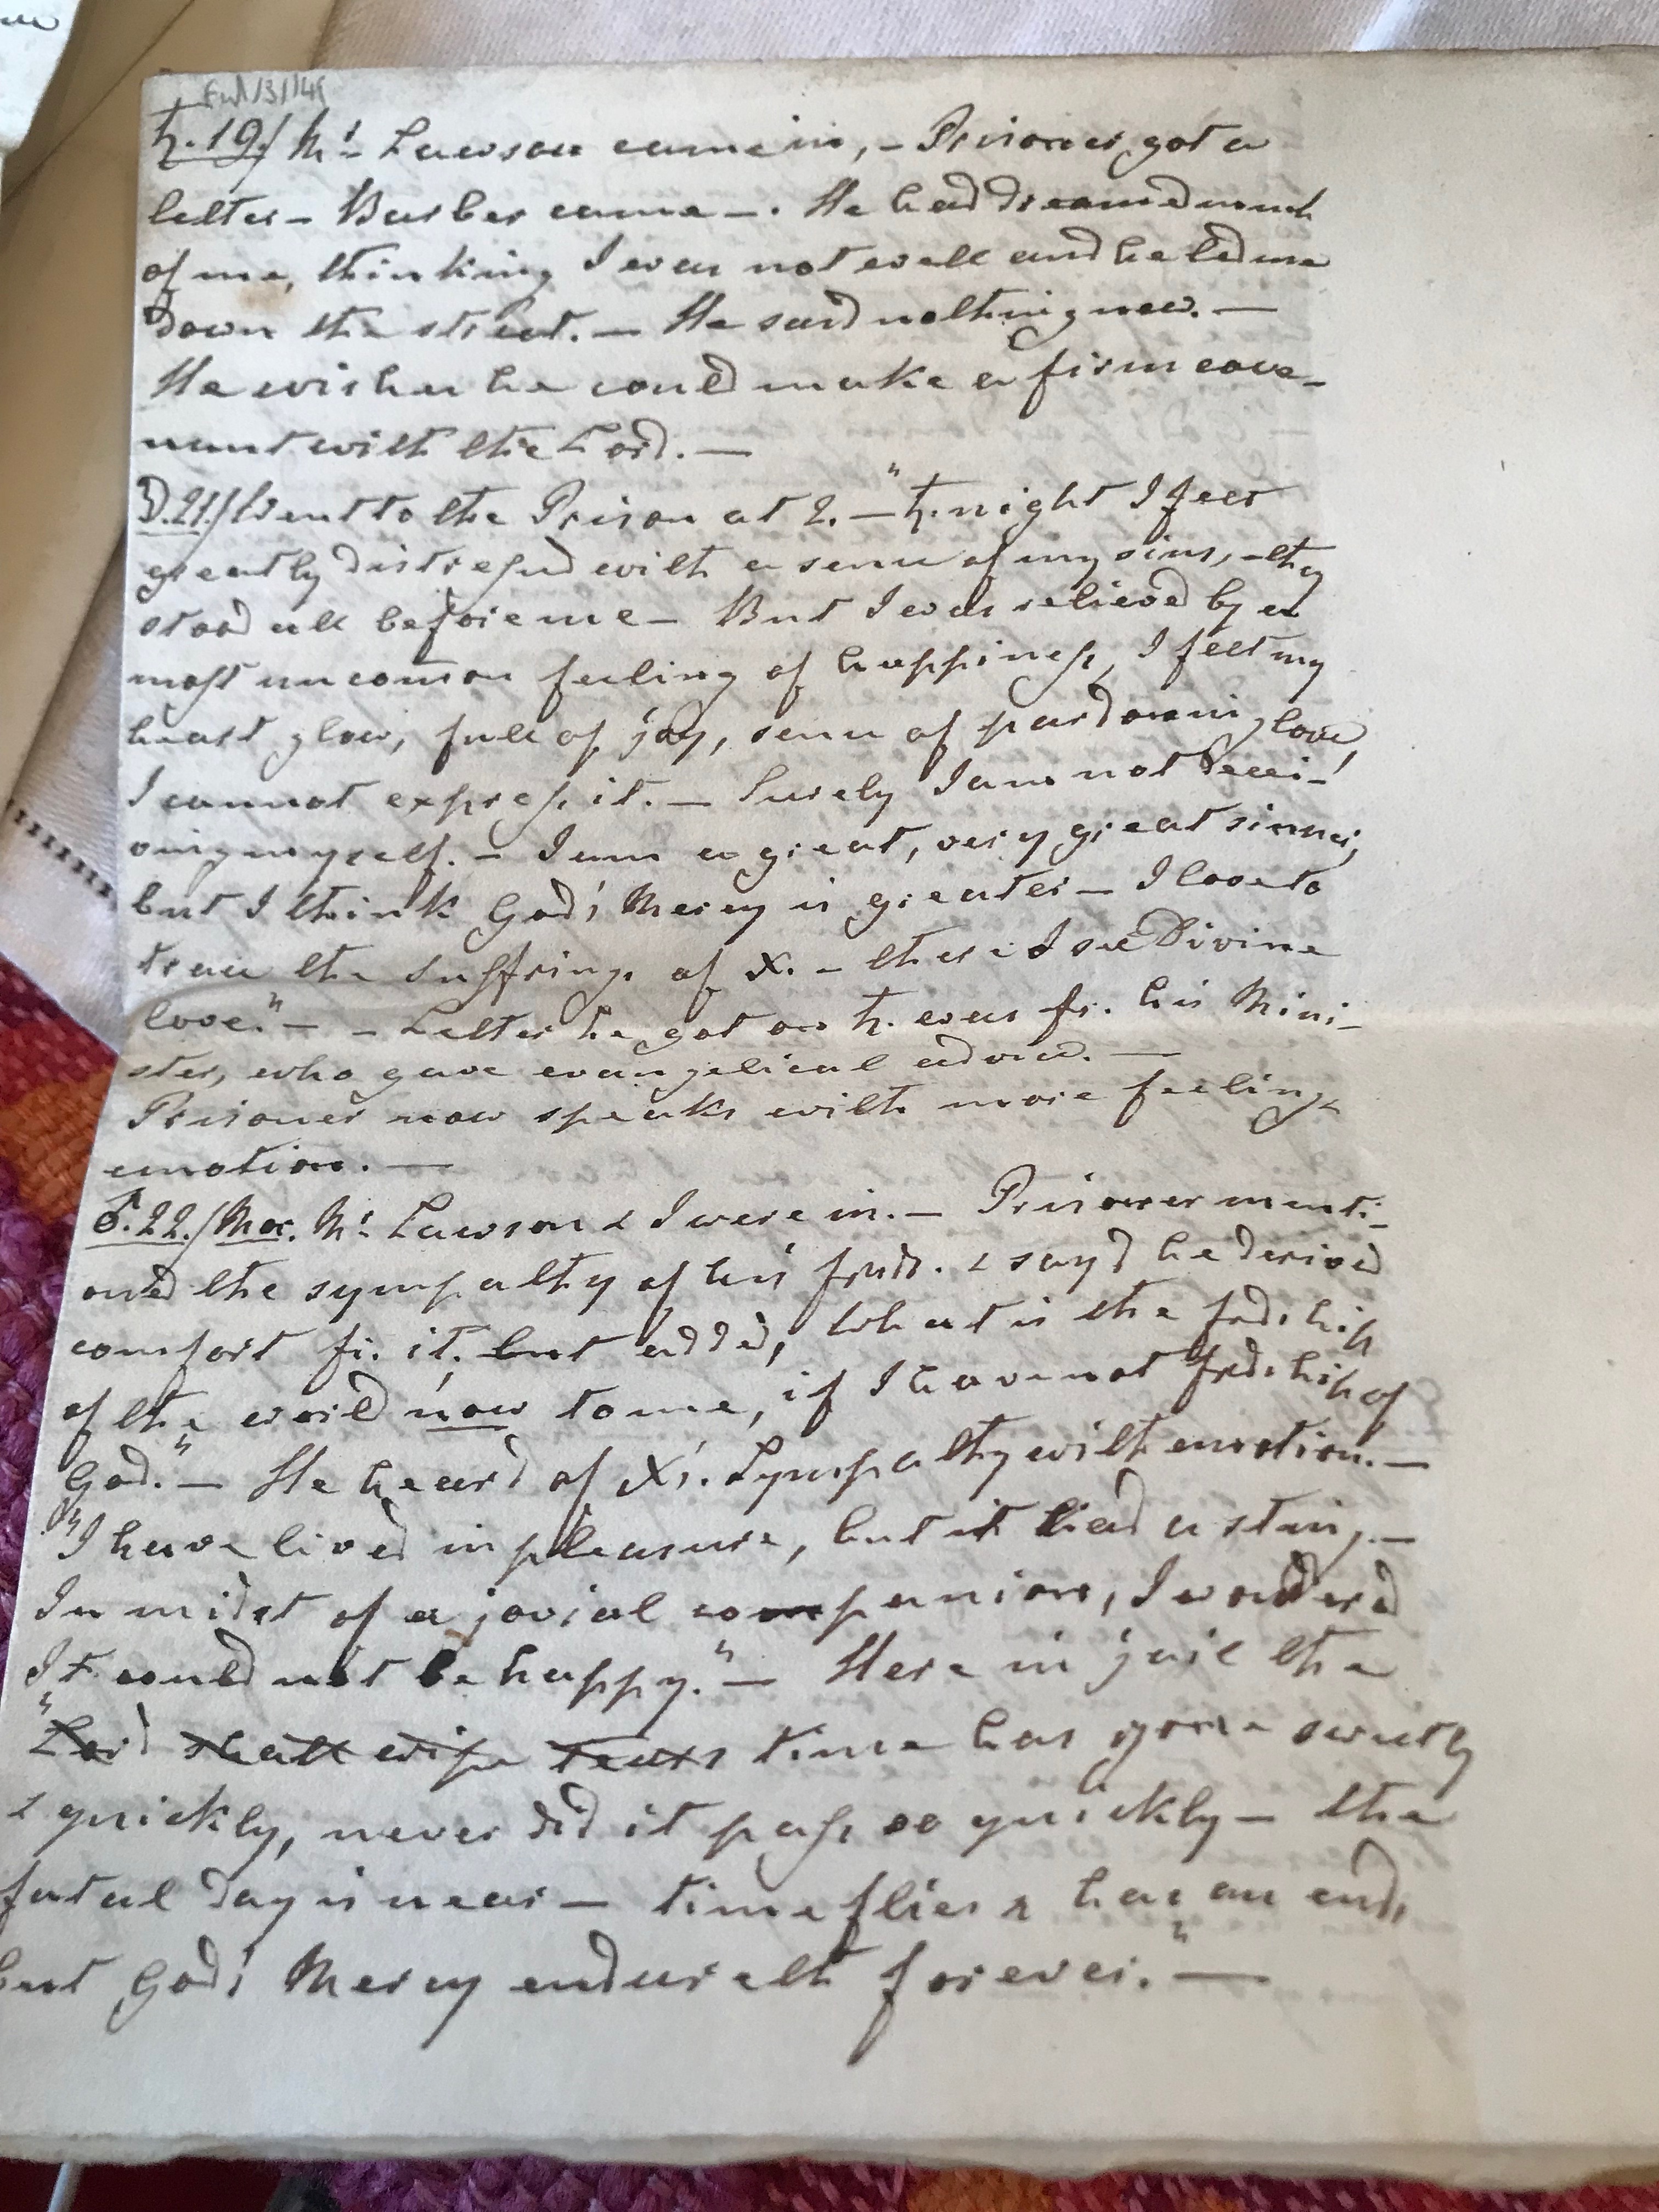 ♄.19/ Mr. Lawson came in, – Prisoner got a
letter – Barber came –. He had dreamed much
of me, thinking I was not well and he led me
down the street. – He said nothing new. –
He wishes he could make a firm cove-
nant with the Lord. –
☽.21./ Went to the Prison at 2. – "♄. night I felt
greatly distressed with a sense of my sins, – they
stood all before me – But I was relieved by a
most uncommon feeling of happiness, I felt my
heart glow, full of joy, sense of pardoning love,
I cannot express it. – Surely I am not decei-
ving myself. – I am a great, very great sinner,
but I think God's Mercy is greater – I love to
trace the suffrings of X. – there I see Divine
love." – – Letter he got on ♄. was fr. his Mini-
ster, who gave evangelical advice. –
Prisoner now speaks with more feeling &
emotion. –
♂.22./ Mor. Mr. Lawson & I were in. – Prisoner menti-
oned the sympathy of his frnds. & sayd he derived
comfort fr. it, but added, What is the frdship
of the world now to me, if I have not frdship of
God." – He heard of X's. Sympathy with emotion. –
"I have lived in pleasure, but it had a sting. –
In midst of a jovial companion, I wondered
I could not be happy." – Here in jail the
"Lord shall wipe tears time has gone sweetly
& quickly, never did it pass so quickly – the
fatal day is near – time flies & has an end,
but God's Mercy endureth forever." –